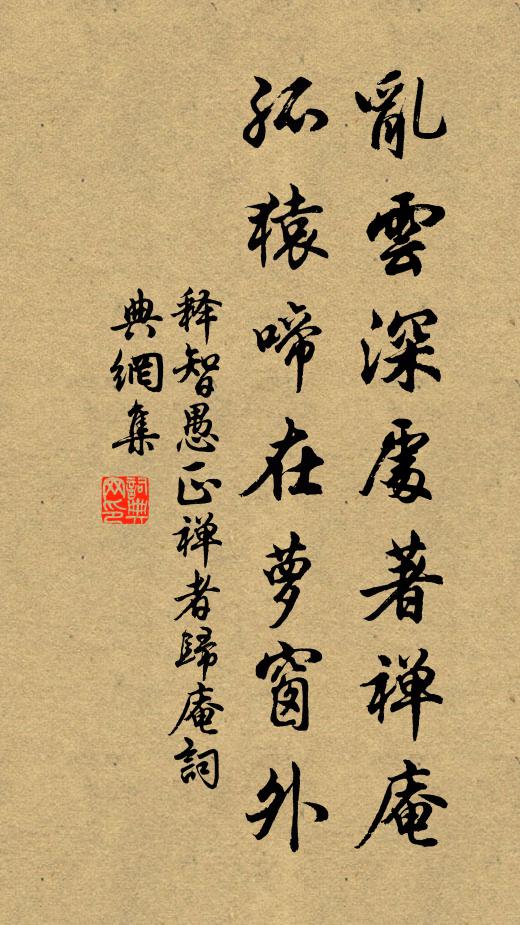 亂雲深處著禅庵
孤猿啼在萝窗外
释智愚正禅者歸庵詞
典網集
詞典网印